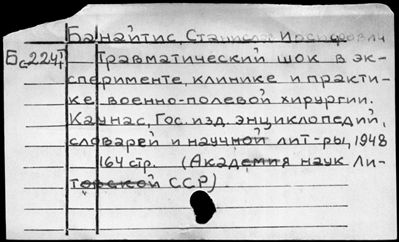 Банайтис, Станислав Иосифович
Бс224т Травматический шок в экс-
сперименте, клинике и практи-
ке военно-полевой хирургии.
Каунас, Гос. изд. энциклопедий,
словарей и научной лит-ры, 1948
164 стр. (Академия наук Ли-
товской ССР)